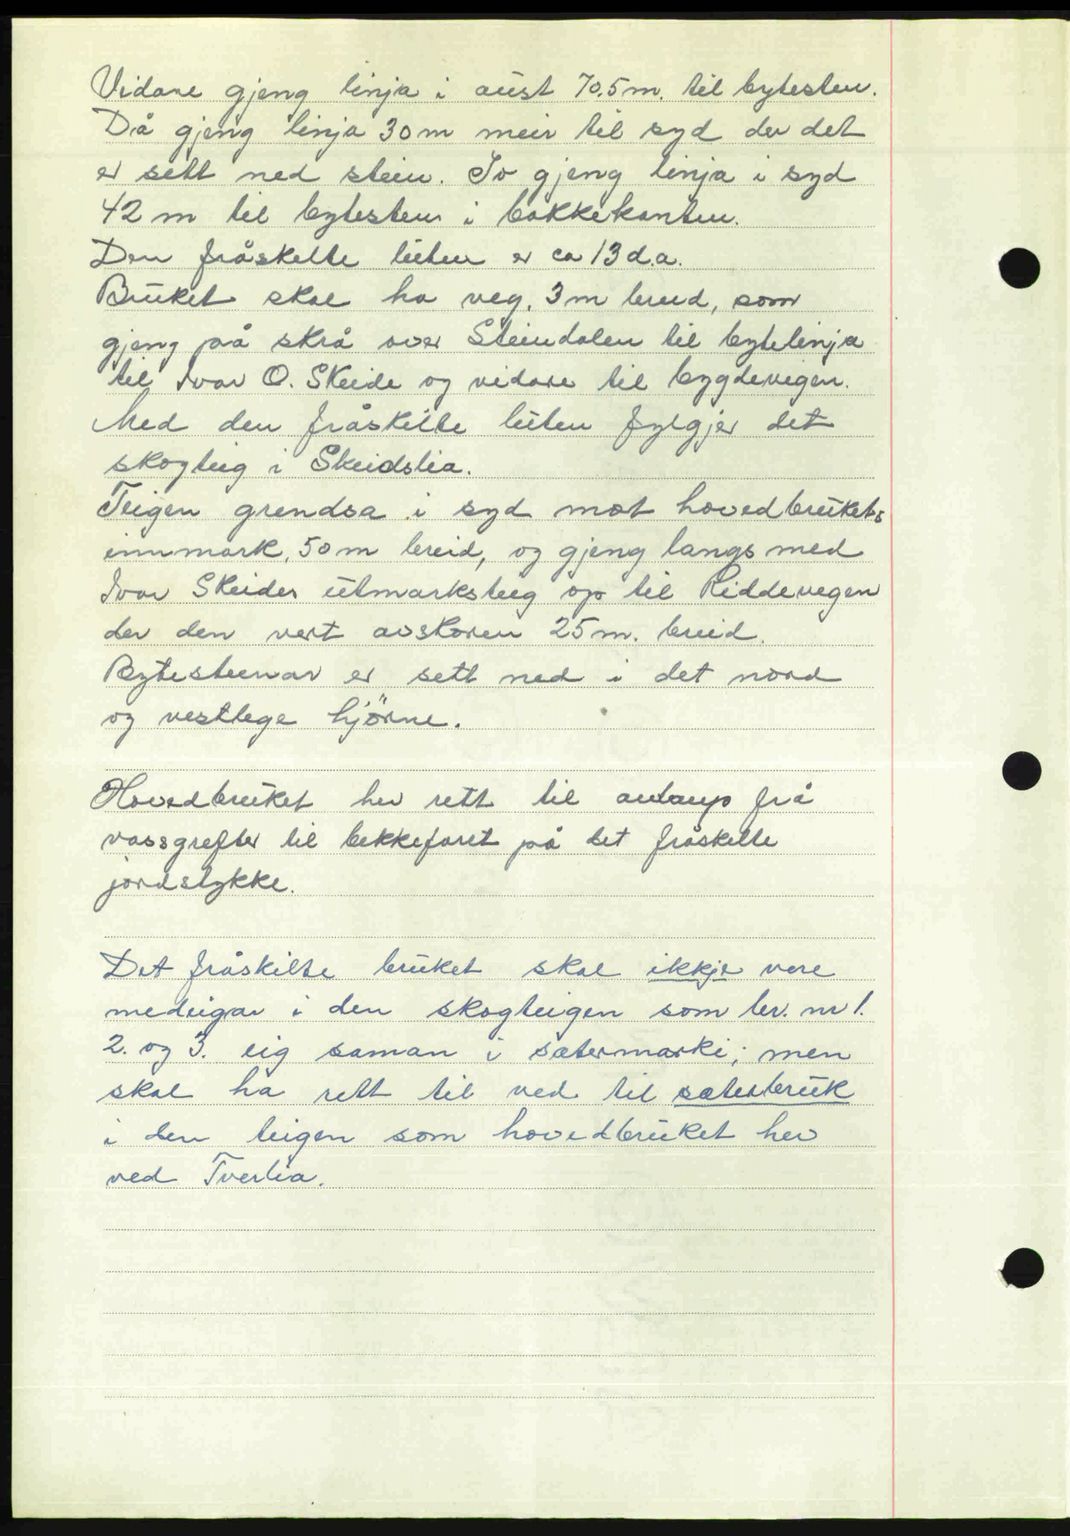 Vidare gjeng linja i aust 70.5 m. til bytesten.
Då gjeng linja 30 m meir til syd der det
er sett ned stein. So gjeng linja i syd
42 m til bytesten i bakkekanten.
Den fråskilte luten er ca 13 d.a.
Bruket skal ha veg, 3 m breid, som
gjeng på skrå over Steindalen til bytelinja
til Ivar O. Skeide og vidare til bygdevegen.
Med den fråskilte luten fylgjer det
skogteig i Skeidslia.
Teigen grendsa i syd mot hovedbrukets
innmark, 50 m breid, og gjeng langs med
Ivar Skeides utmarksteig op til Riddevegen
der den vert avskoren 25 m. breid.
Bytesteinar er sett ned i det nord
og vestlege hjörne.
Hovedbruket hev rett til frå
vassgrefter til bekkefaret på det fråskilte
jordstykke.
Det fråskilte bruket skal ikkje vere
medeigar i den skogteigen som br. nr 1.
2. og 3. eig saman i sætermarki; men
skal ha rett til ved til sæterbruk
i den teigen som hovedbruket hev
ved Tverlia.